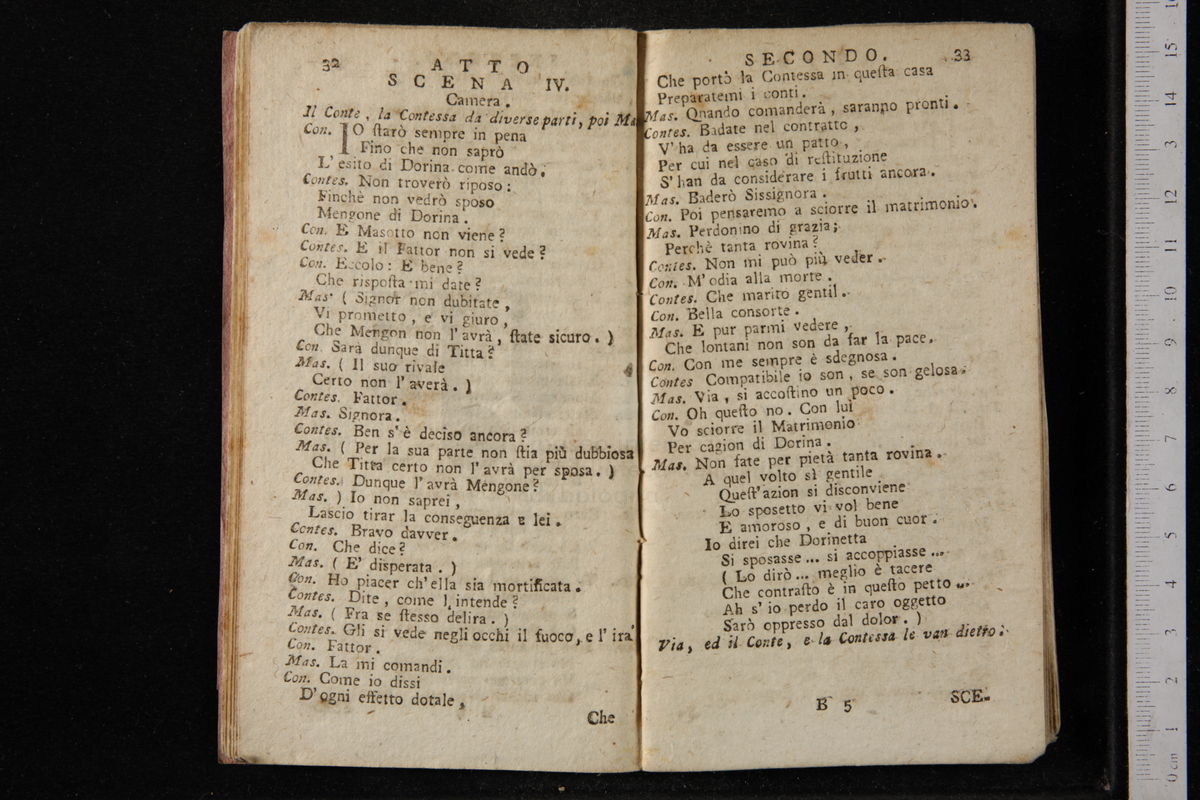 32 ATTO
SCENA IV.
Camera.
Il Conte, la Contessa da diverse parti, poi Ma
Con. IO ſtarò sempre in pena
Fino che non saprò
L'esito di Dorina come andò.
Contes. Non troverò riposo:
Finchè non vedrò sposo
Mengone di Dorina.
Con. E Masotto non viene?
Contes. E il Fattor non si vede?
Con. Eccolo: E bene?
Che rispoſta mi date?
Mas. ( Signor non dubitate,
Vi prometto, e vi giuro,
Che Mengon non l'avrà, ſtate sicuro. )
Con. Sarà dunque di Titta?
Mas. ( Il suo rivale
Certo non l'averà. )
Contes. Fattor.
Mas. Signora.
Contes. Ben s'è deciso ancora?
Mas. ( Per la sua parte non ſtia più dubbiosa
Che Titta certo non l'avrà per sposa. )
Contes. Dunque l'avrà Mengone?
Mas. ) Io non saprei,
Lascio tirar la conseguenza a lei.
Contes. Bravo davver.
Con. Che dice?
Mas. ( E' disperata. )
Con. Ho piacer ch'ella sia mortificata.
Contes. Dite, come l'intende?
Mas. ( Fra se ſtesso delira. )
Contes. Gli si vede negli occhi il fuoco, e l'ira
Con. Fattor.
Mas. La mi comandi.
Con. Come io dissi
D'ogni effetto dotale,
Che
SECONDO. 33
Che portò la Contessa in queſta casa
Preparatemi i conti.
Mas. Quando comanderà, saranno pronti.
Contes. Badate nel contratto,
V'ha da essere un patto,
Per cui nel caso di reſtituzione
S'han da considerare i frutti ancora.
Mas. Baderò Sissignora.
Con. Poi pensaremo a sciorre il matrimonio.
Mas. Perdonino di grazia;
Perchè tanta rovina?
Contes. Non mi può più veder.
Con. M'odia alla morte.
Contes. Che marito gentil.
Con. Bella consorte.
Mas. E pur parmi vedere,
Che lontani non son da far la pace.
Con. Con me sempre è sdegnosa.
Contes Compatibile io son, se son gelosa.
Mas. Via, si accoſtino un poco.
Con. Oh queſto no. Con lui
Vo sciorre il Matrimonio
Per cagion di Dorina.
Mas. Non fate per pietà tanta rovina.
A quel volto sì gentile
Queſt'azion si disconviene
Lo sposetto vi vol bene
E amoroso, e di buon cuor.
Io direi che Dorinetta
Si sposasse... si accoppiasse...
( Lo dirò... meglio è tacere
Che contraſto è in queſto petto...
Ah s'io perdo il caro oggetto
Sarò oppresso dal dolor. )
Via, ed il Conte, e la Contessa le van dietro.
B 5 SCE-
15
14
13
12
11
10
9
8
7
6
5
4
3
2
1
0 cm